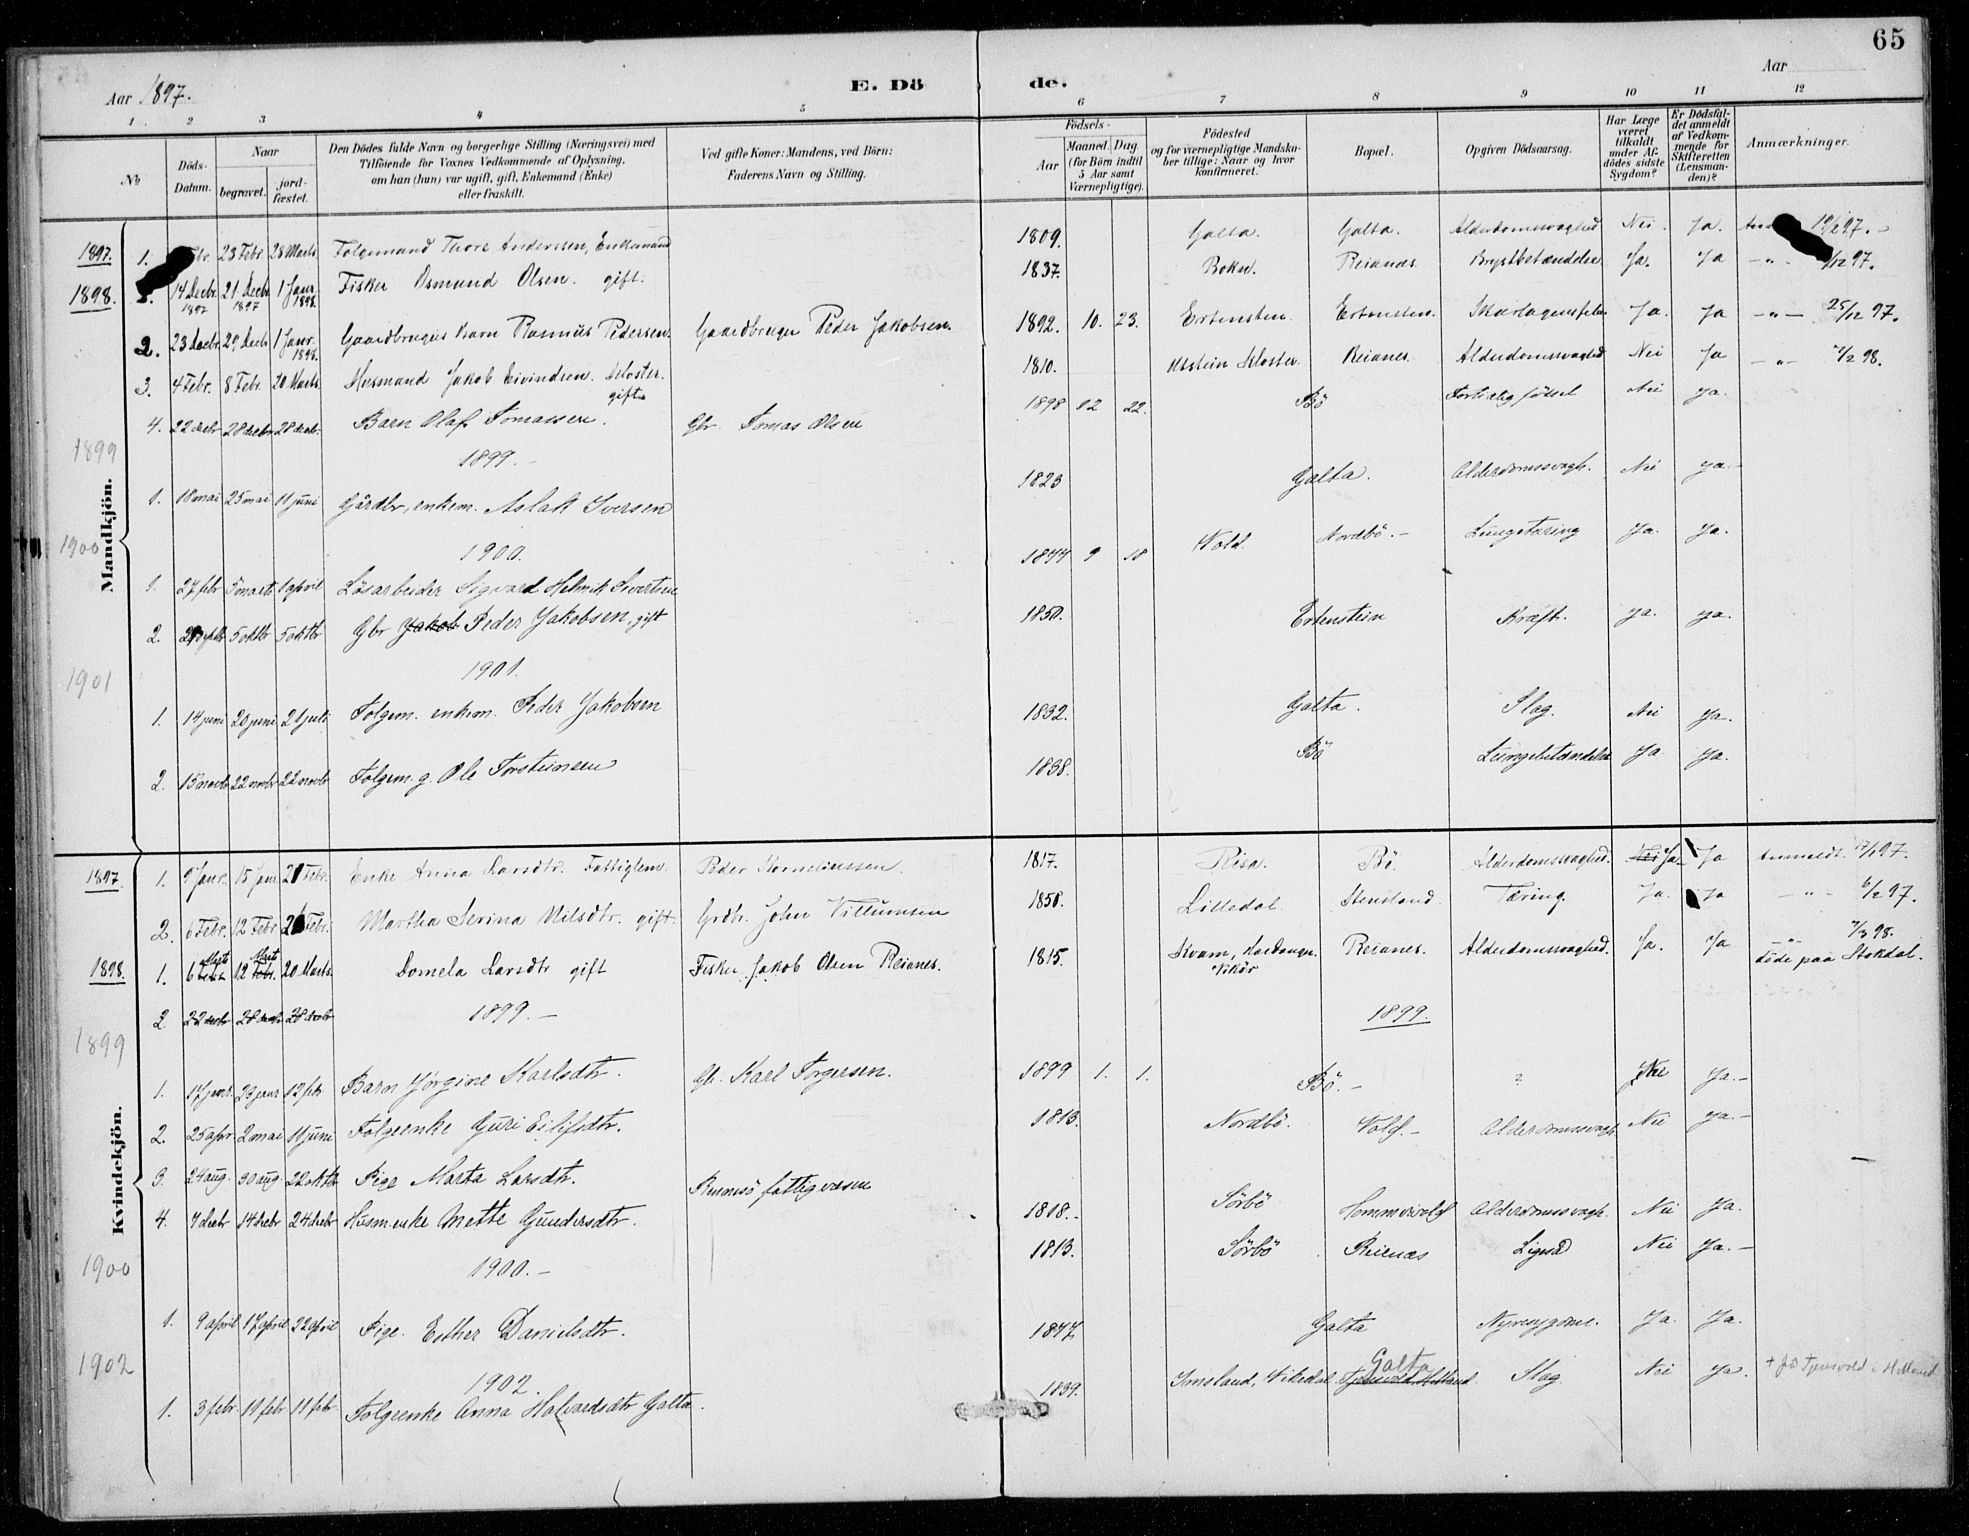 65
Aar 1897. E. Dö de. Aar
1 2 3 4 5 6 7 8 9 10 11 12
No
Döds-Datum.
Naar begravet. jordfæstet.
Den Dödes fulde Navn og borgerlige Stilling (Næringsvei) med
Tilföiende for Voxnes Vedkommende af Oplysning,
om han (hun) var ugift, gift, Enkemand (Enke)
eller fraskilt.
Ved gifte Koner: Mandens, ved Börn:
Faderens Navn og Stilling.
Födsels-
Aar Maaned. Dag
(for Börn indtil 5 Aar samt Værnepligtige).
Födested
og for værnepligtige Mandskaber tillige: Naar og hvor konfirmeret.
Bopæl.
Opgiven Dödsaarsag.
Har Læge været tilkaldt under Afdödes sidste Sygdom?
Er Dödsfaldet anmeldt af Vedkommende for Skifteretten (Lensmanden)?
Anmærkninger.
Mandkjön.
1897. 1. 23 Febr. 28 Marts. Folgemand Thore Anderssen, Enkemand 1809. Galta. Galta. Alderdomssvaghed Nei. Ja.
1898. 14 Decbr. 1897 21 Decbr 1897 1 Janr. 1898. Fisker Osmund Olsen. gift. 1837. Bokn. Reianes. Brystbetændelse Ja. Ja -"- /12 97.
2. 23 Decbr. 29 Decbr 1 Janr. 1898. Gaardbrugers Barn Rasmus Pedersen. Gaardbruger Peder Jakobsen. 1892. 10. 23. Ertensten. Ertensten. Skarlagensfeber Ja. Ja -"- 25/12 97.
3. 4 Febr. 8 Febr. 20 Marts. Husmand Jakob Eivindsen. Kloster. gift. 1810. Utstein Kloster. Reianes. Alderdomssvaghed Nei Ja -"- 7/2 98.
4. 22 decbr 28 decbr 28 decbr. Barn Olaf Tomassen. Gbr Tomas Olsen 1898 12 22. Bö Fortidlig födsel Nei ja.
1899 1899.-
1. 18 mai 25 mai 11 juni Gårdbr, enkem. Aslak Iversen 1823 Galta. Alderdomssvagh. Nei ja.-
1900 1900.
1. 27 febr 5 marts 1 april Lösarbeider Sigvard Helmik Sivertsen 1877 9 18 Vold. Nordbö.- Lungetæring Ja. Ja.
2. 5 oktbr 5 oktbr Gbr Jakob Peder Jakobsen, gift 1850. Ertenstein Kræft. ja. ja.
1901 1901.
1. 14 juni 20 juni 21 juli Folgem. enkem. Peder Jakobsen 1832. Galta. Slag. Nei ja.
2. 15 novbr 22 novbr 22 novbr Folgem. g. Ole Torsteinsen 1838. Bö Lungebetændelse Ja Ja.
Kvindekjön.
1897. 1. 9 Janr. 15 Janr 21 Febr. Enke Anna Larsdtr. Fattiglem. Peder Korneliussen. 1817. Risa. Bö. Alderdomssvaghed. Nei Ja. Ja Anmeldt. /1 97.
2. 6 Febr. 12 Febr. 21 Febr. Martha Serina Nilsdtr. gift. Grdb. John Villumsen 1850. Lilledal. Stensland. Tæring. Ja. Ja -"- 6/2 97.
1898. 1. 6 Marts Febr. 12 Marts Febr. 20 Marts. Domela Larsdtr gift Fisker Jakob Olsen Reianes. 1815. Kvam, Hardanger. Vikör Reianes. Alderdomssvaghed. Ja. Ja -"- 7/3 98. döde paa Stokdal.
2. 22 decbr 28 decbr 28 decbr
1899 1899.- 1899.
1. 17 janr. 23 janr 12 febr Barn Jörgine Karlsdtr. Gb. Karl Torgersen. 1899 1. 1. Bö.- ? Nei Ja.-
2. 25 apr 2 mai 11 juni Folgeenke Guri Eilifsdtr. 1813. Nordbö. Vold.- Alderdomssvagh Nei ja.-
3. 24 aug. 30 aug. 22 oktbr Pige Marta Larsdtr. Rennesö fattigvæsen 1818.- Sörbö Hommervold Alderdomssvagh. Nei Ja.
4. 7 decbr 14 decbr 24 decbr Husm.enke Mette Gundersdtr. 1813. Sörbö. Reienæs Ligeså Nei Ja.-
1900 1900.-
1. 9 april 17 april 22 april Pige. Esther Danielsdtr. 1877 Galta Nyresygdom. Ja. Ja.
1902 1902.
1. 3 febr. 11 febr 11 febr. Folgeenke Anna Halvardsdtr Galta. 1839. Imsland, Vikedal. Galta Slag. Nei ja.